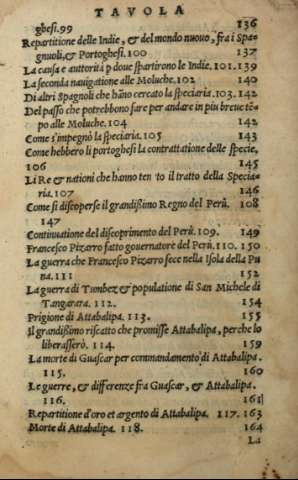 TAVOLA
ghesi.99 136
Repartitione delle Indie, & del mondo nuouo, fra i Spa-
gnuoli, & Portoghesi.100 137
La causa e auttorità p doue spartirono le Indie.101.139
La seconda nauigatione alle Moluche.102 140
Di altri Spagnoli che hāno cercato la speciaria.103.142
Del passo che potrebbono fare per andare in piu breue tē-
po alle Moluche.104 142
Come s'impegnò la speciaria.105 143
Come hebbero li portoghesi la contrattatione delle specie,
106 145
Li Re & nationi che hanno ten to il tratto della Specia-
ria.107 146
Come si discoperse il grandißimo Regno del Perù. 108
147
Continuatione del discoprimento del Perù.109. 149
Francesco Pizarro fatto gouernatore del Perù.110. 150
La guerra che Francesco Pizarro fece nella Isola della Pu
na.111 152
La guerra di Tumbez & populatione di San Michele di
Tangarara. 112. 154
Prigione di Attabalipa. 113. 155
Il grandißimo riscatto che promisse Attabalipa, perche lo
liberasserò. 114. 159
La morte di Guascar per commandamento di Attabalipa.
115. 160
Le guerre, & differenze fra Guascar, & Atabalipa.
116. 161
Repartitione d'oro et argento di Attabalipa. 117. 163
Morte di Attabalipa. 118. 164
La